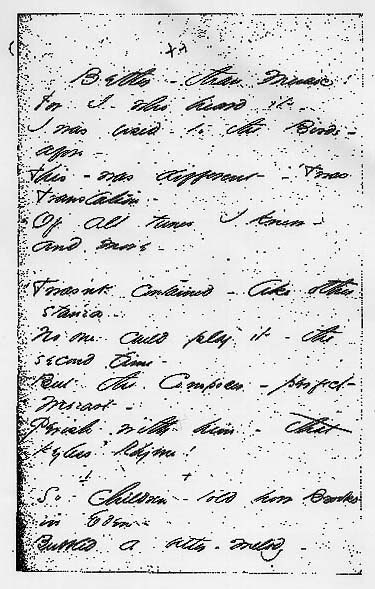 Better - than music!
For I - who heard it -
I was used - to the Birds -
before -
This - was different - 'Twas
Translation -
Of all tunes I knew -
and more -
'Twasn't contained - like other
stanza -
No one could play it - the
second time -
But the Composer - perfect
Mozart -
Perish with him - that
Keyless Rhyme!
So Children - told how Brooks
in Eden -
Bubbled a better - melody -